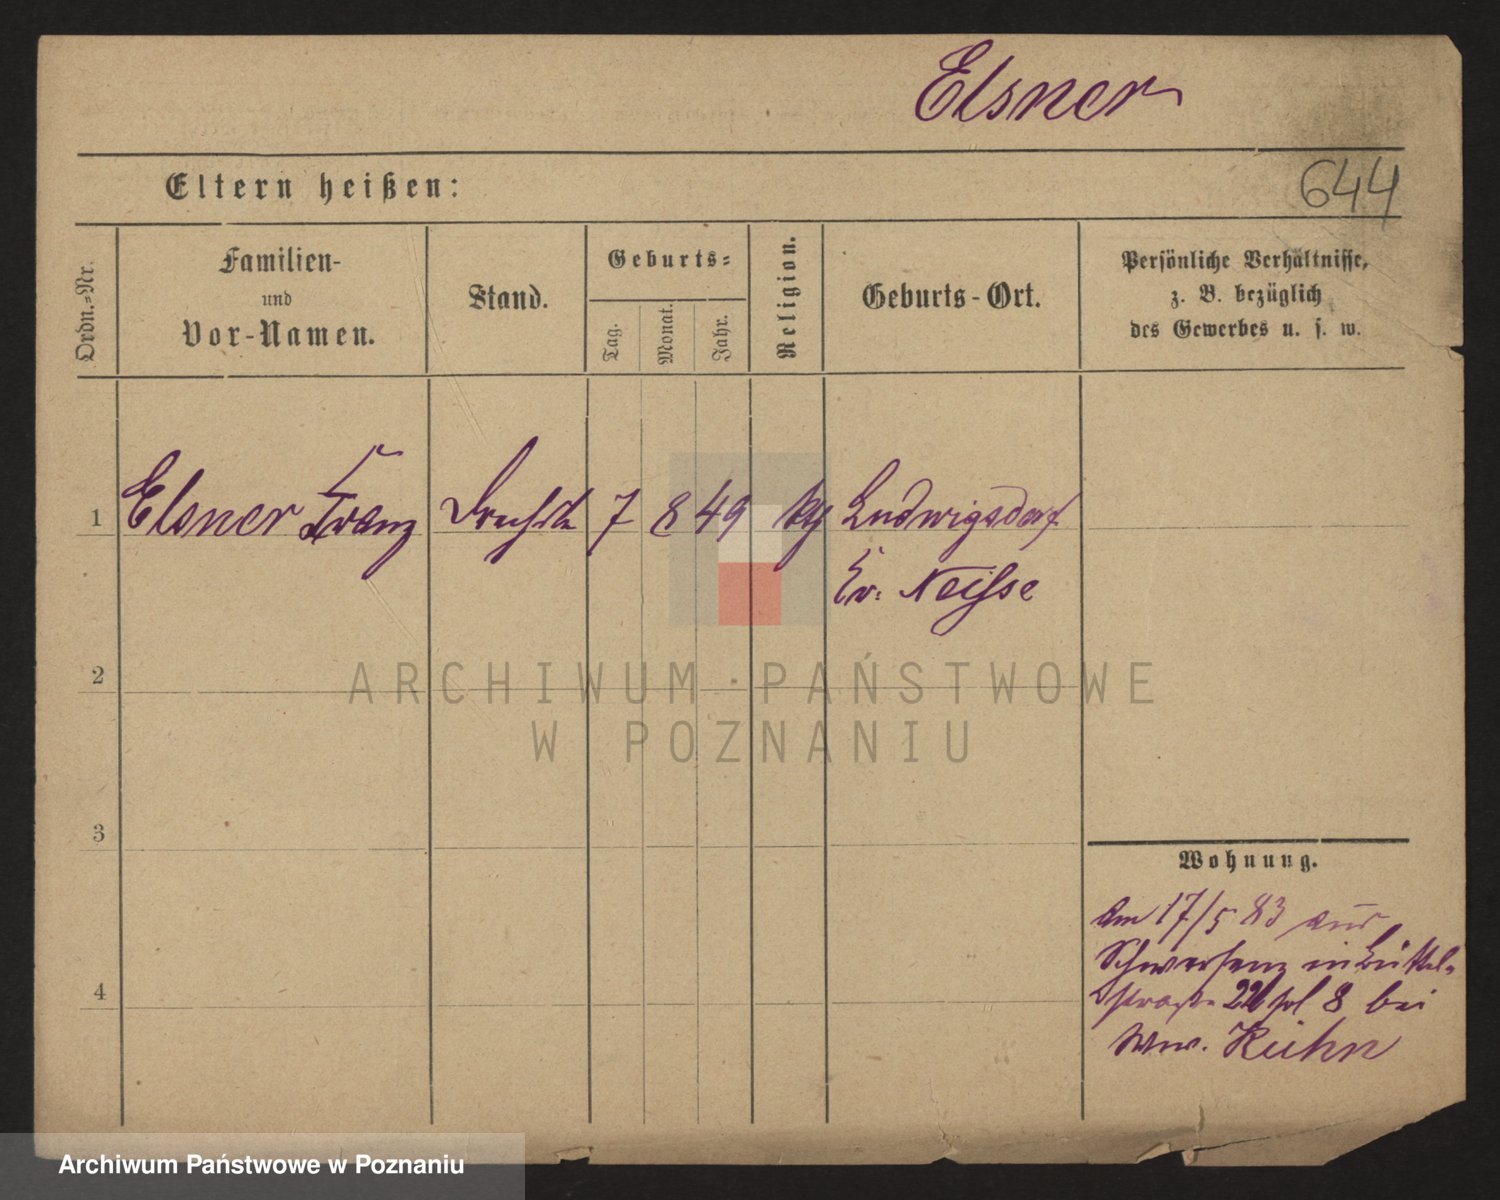 Elsner
Eltern heißen:
644
Ordn.=Nr.
Familien-
und
Vor-Namen.
Stand.
Geburts=
Tag.
Monat.
Jahr.
Religion.
Geburts-Ort.
Persönliche Verhältnisse,
z. B. bezüglich
des Gewerbes u. s. w.
1 Elsner Franz 7 8 49 Ludwigsdorf
Kr. Neisse
2
3
4
Wohnung.
Am 17/5 83 aus
Schwersenz in Büttel-
straße 22 8 bei
Ww. Kühn
ARCHIWUM PAŃSTWOWE
W POZNANIU
Archiwum Państwowe w Poznaniu